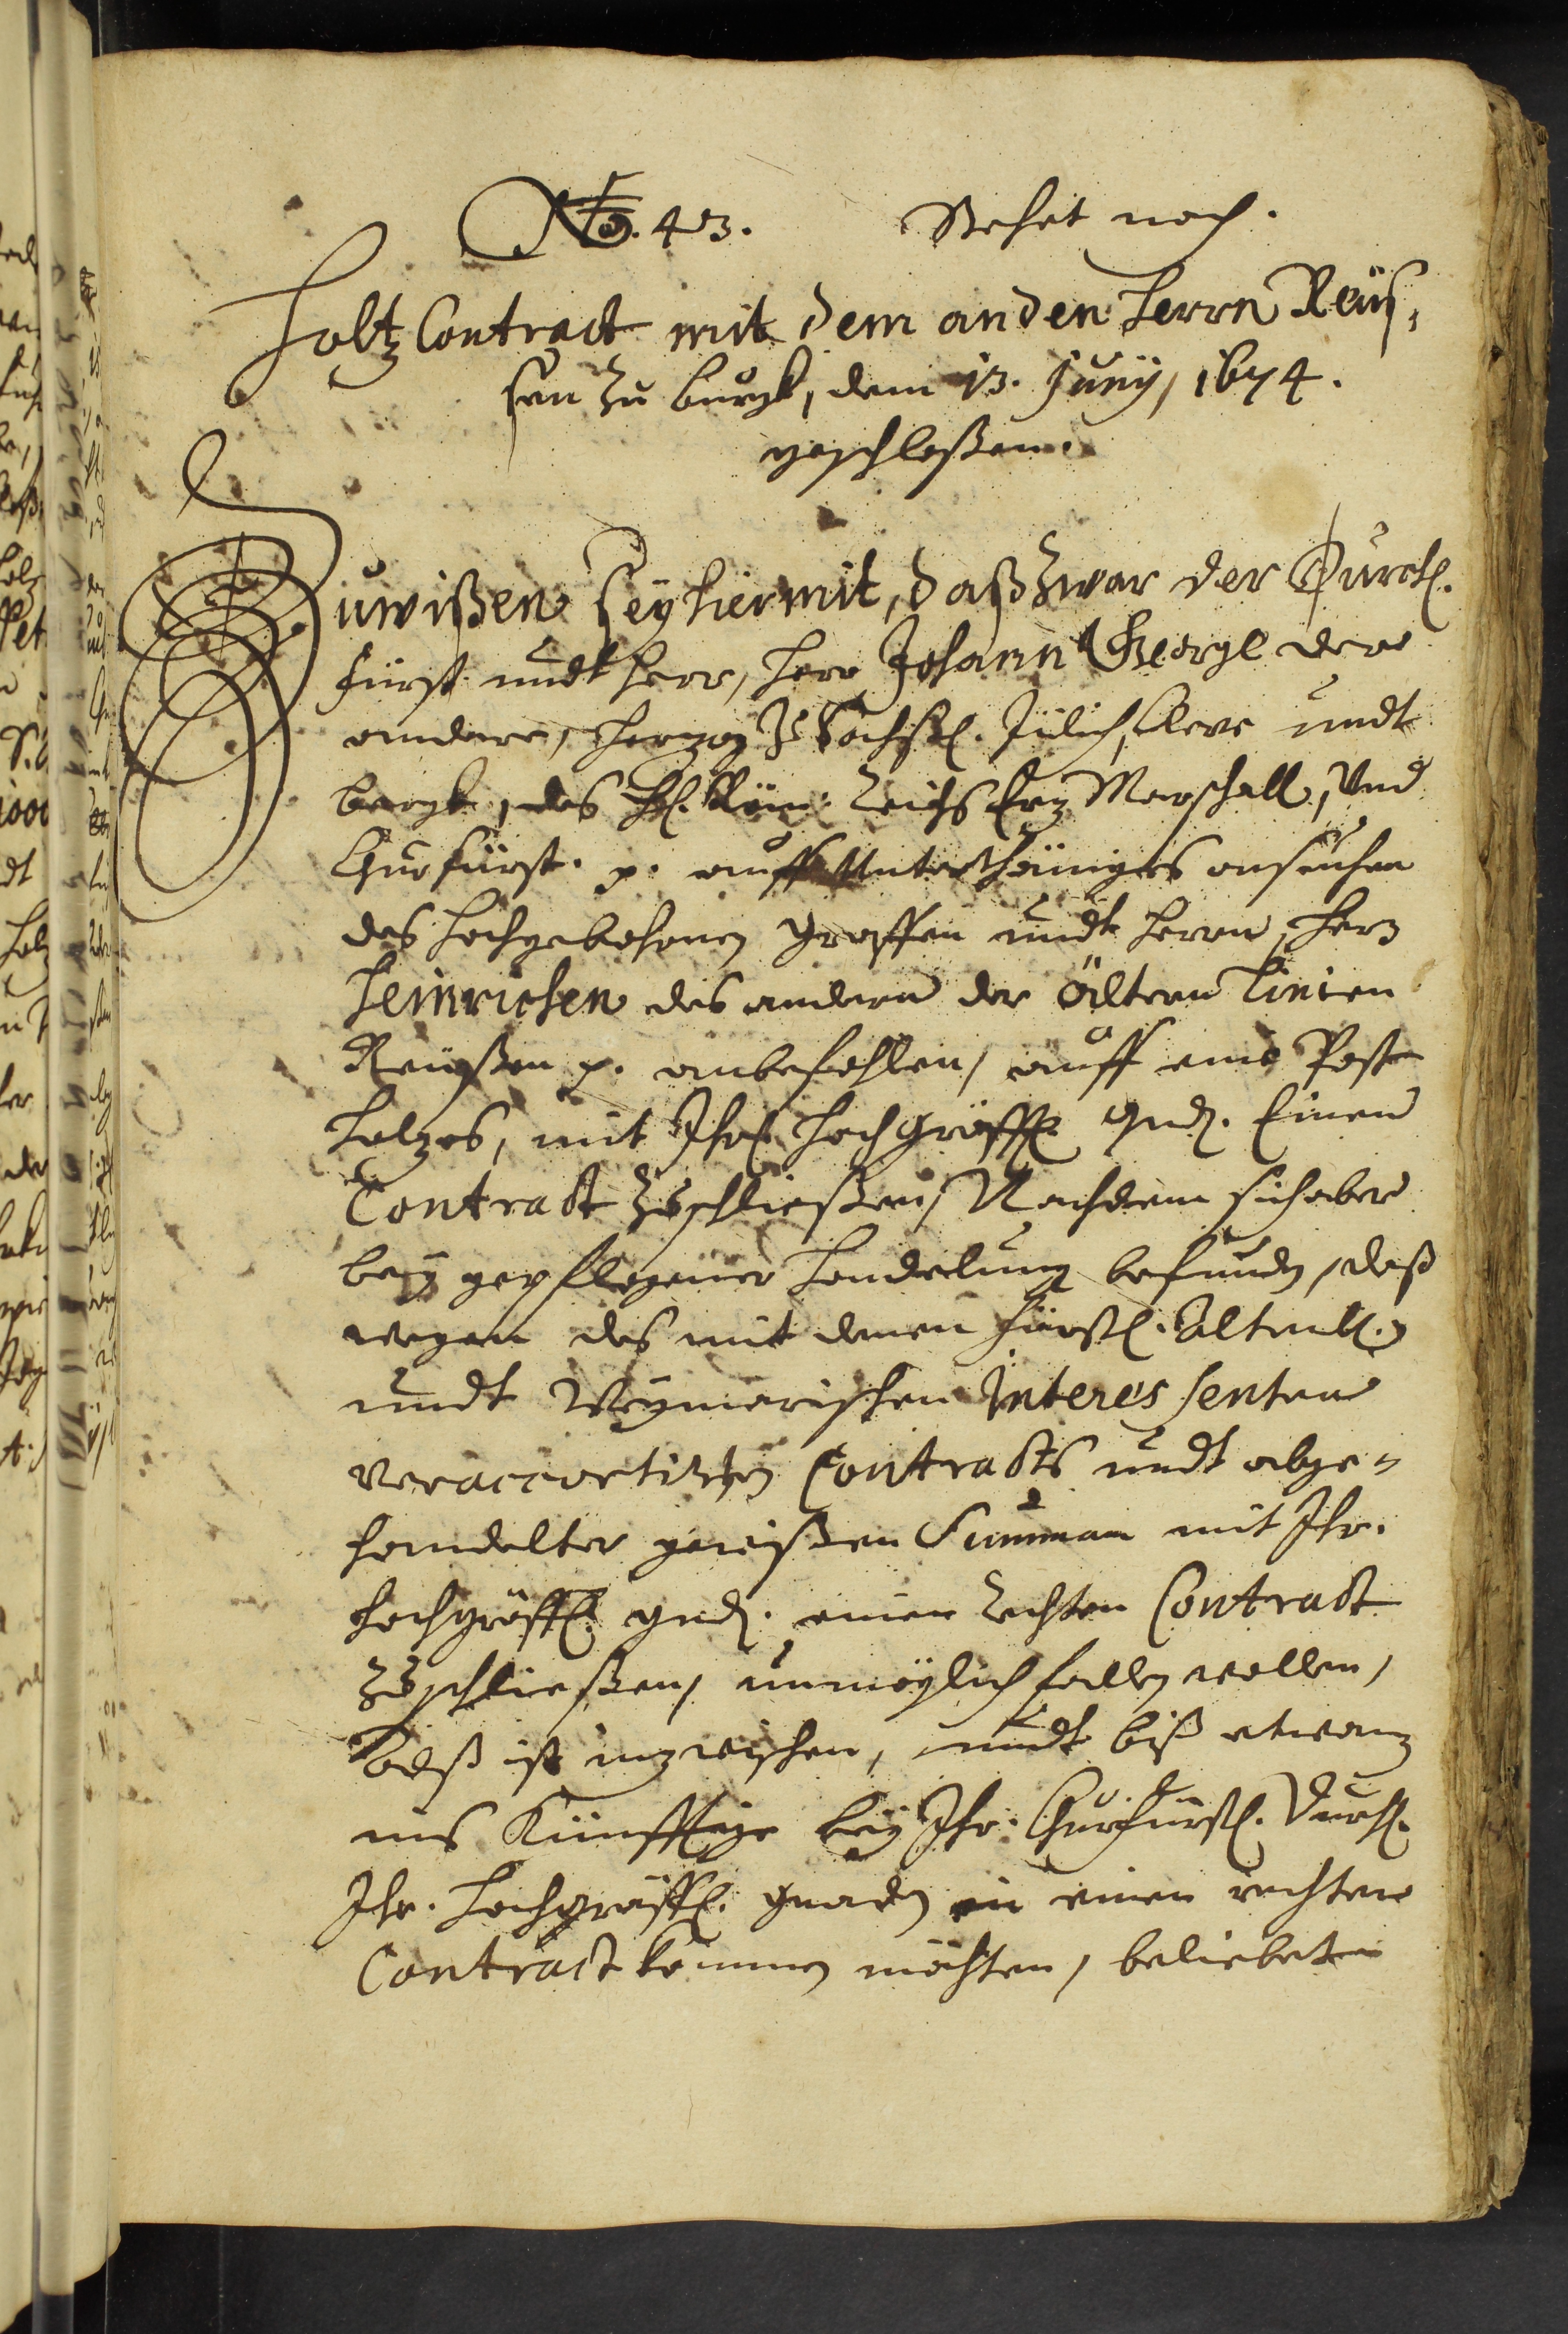 No. 43. Stehet noch.
Holtz Contract mit dem andern Herrn Reüs,
sen zu Burgk, dem 13. Junÿ, 1674.
geschloßen.
Zuwißen seÿ hiermit, daß zwar der Durchl.
Fürst undt Herr, Herr Johann George der
andere, Herzog zu Sachßen, Jülich, Cleve undt
Bergk, des Hl. Röm. Reichs Erz Marschall, Und
Churfürst. p. auff Unterthäniges ansuchen
des Hochgebohrnen Graffen undt Herrn, Herrn
Heinrichen des andern der ältern Linien
Reüßen p. anbefohlen, auff eine Post
Holzes, mit Ihrl. Hochgräffl. Gnd. Einen
Contract zuschließen, Nachdem sich aber
beÿ gepflogener Handelung befunden, daß
wegen des mit denen Fürstl. Altenb.
undt Weÿmarischen Interessenten
veraccortirten Contracts undt abge-
handelter gewißen Summen mit Ihr.
Hochgräffl. Gnd. einen rechten Contract
zuschließen, unmöglich fallen wollen,
Alß ist inzwischen, undt biß etwan
ins Künfftige beÿ Ihr. Churfürstl. Durchl.
Ihr. Hochgräffl. Gnaden in einen rechten
Contract kommen möchten, beliebet